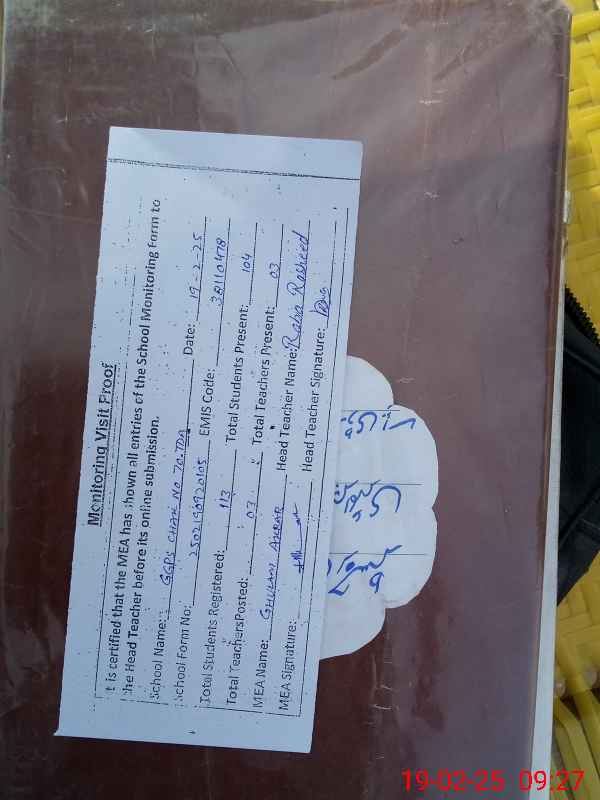 Monitoring Visit Proof
It is certified that the MEA has shown all entries of the School Monitoring Form to
the Head Teacher before its online submission.
School Name: GGPS CHAK NO 70-TDA Date: 19-2-25
School Form No: 2502190920105 EMIS Code: 38110478
Total Students Registered: 113 Total Students Present: 104
Total Teachers Posted: 03 Total Teachers Present: 03
MEA Name: GHULAM AKBAR Head Teacher Name: Rabia Rasheed
MEA Signature: Head Teacher Signature:
19-02-25 09:27